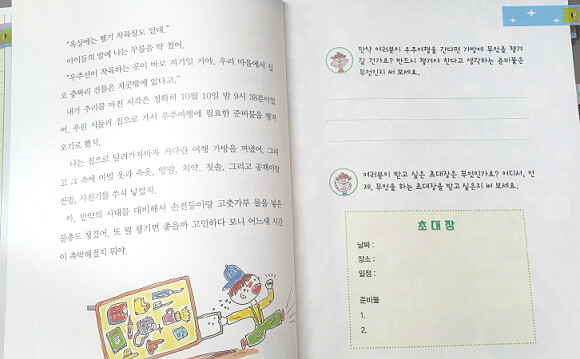 "옥상에는 헬기 착륙장도 있대."
아이들의 말에 나는 무릎을 탁 쳤어.
"우주선이 착륙하는 곳이 바로 저기일 거야. 우리 마을에서 십
오 층짜리 건물은 저곳밖에 없다고."
내가 추리를 마친 시각은 정확히 10월 10일 밤 9시 38분이었
어. 우린 서둘러 집으로 가서 우주여행에 필요한 준비물을 챙겨
오기로 했지.
나는 집으로 달려가자마자 커다란 여행 가방을 꺼냈어. 그리
고 그 속에 여벌 옷과 속옷, 양말, 치약, 칫솔, 그리고 공책이랑
연필, 사진기를 쑤셔 넣었지.
아, 만약의 사태를 대비해서 손전등이랑 고춧가루 물을 넣은
물총도 챙겼어. 또 뭘 챙기면 좋을까 고민하다 보니 어느새 시간
이 촉박해졌지 뭐야.
만약 여러분이 우주여행을 간다면 가방에 무엇을 챙겨
갈 건가요? 반드시 챙겨야 한다고 생각하는 준비물은
무엇인지 써 보세요.
여러분이 받고 싶은 초대장은 무엇인가요? 어디서, 언
제, 무엇을 하는 초대장을 받고 싶은지 써 보세요.
초대장
날짜 :
장소 :
일정 :
준비물
1.
2.